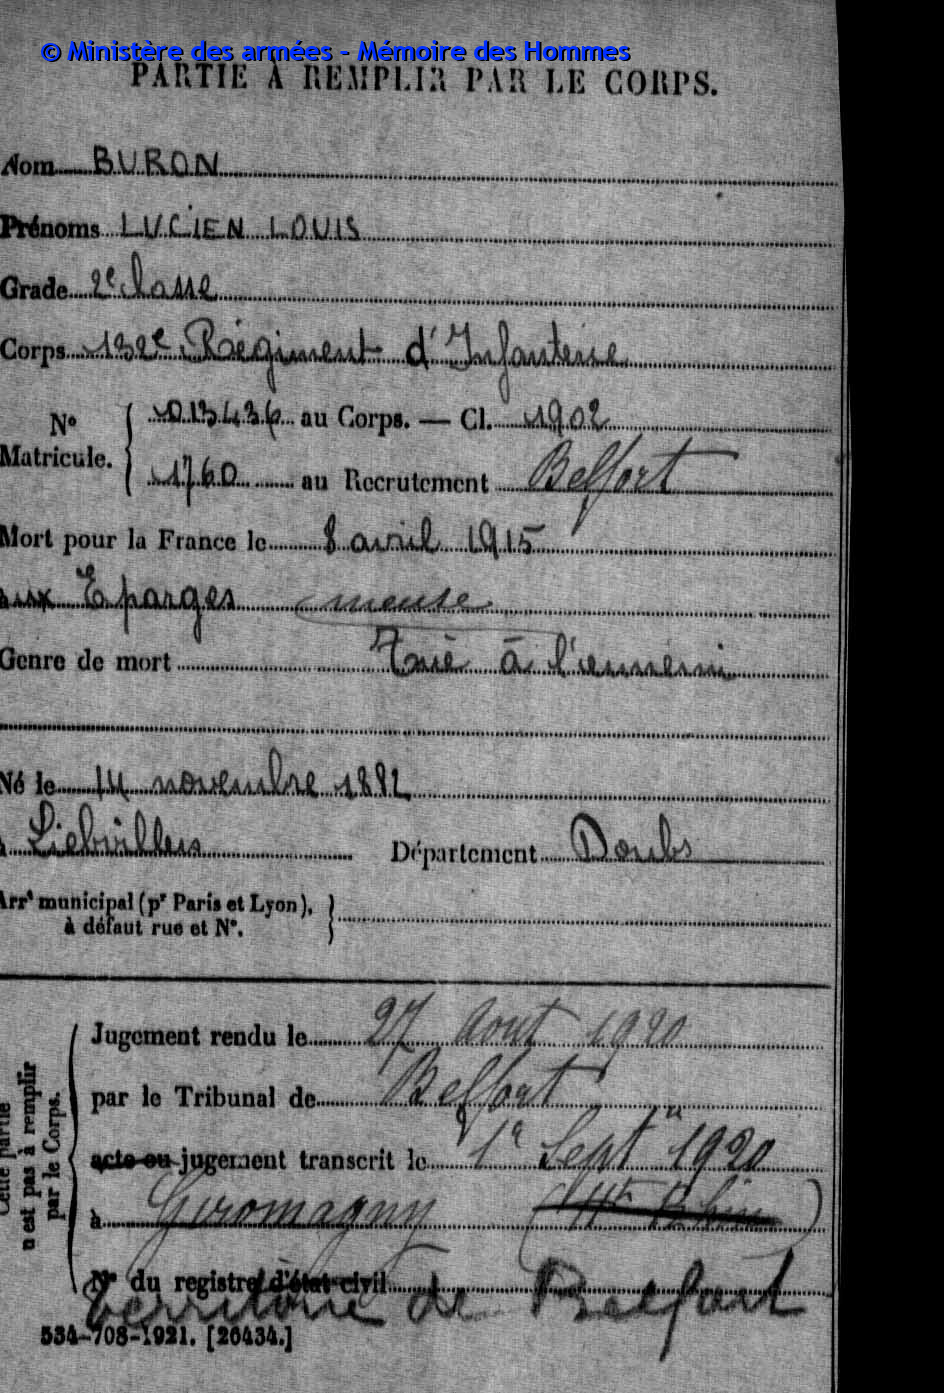 © Ministère des armées - Mémoire des Hommes
PARTIE À REMPLIR PAR LE CORPS.
Nom BURON
Prénoms LUCIEN LOUIS
Grade 2e classe
Corps 132e Régiment d'Infanterie
No Matricule. 013436 au Corps. — Cl. 1902
1760 au Recrutement Belfort
Mort pour la France le 8 avril 1915
aux Eparges (meuse
Genre de mort Tué à l'ennemi
Né le 14 novembre 1882
à Liebvillers Département Doubs
Arrt municipal (pr Paris et Lyon),
à défaut rue et No.
Cette partie
n'est pas à remplir
par le Corps.
Jugement rendu le 27 Aout 1920
par le Tribunal de Belfort
acte ou jugement transcrit le 1er Septre 1920
à Giromagny (Ht Rhin)
No du registre d'état civil
territoire de Belfort
534-708-1921. [26434.]